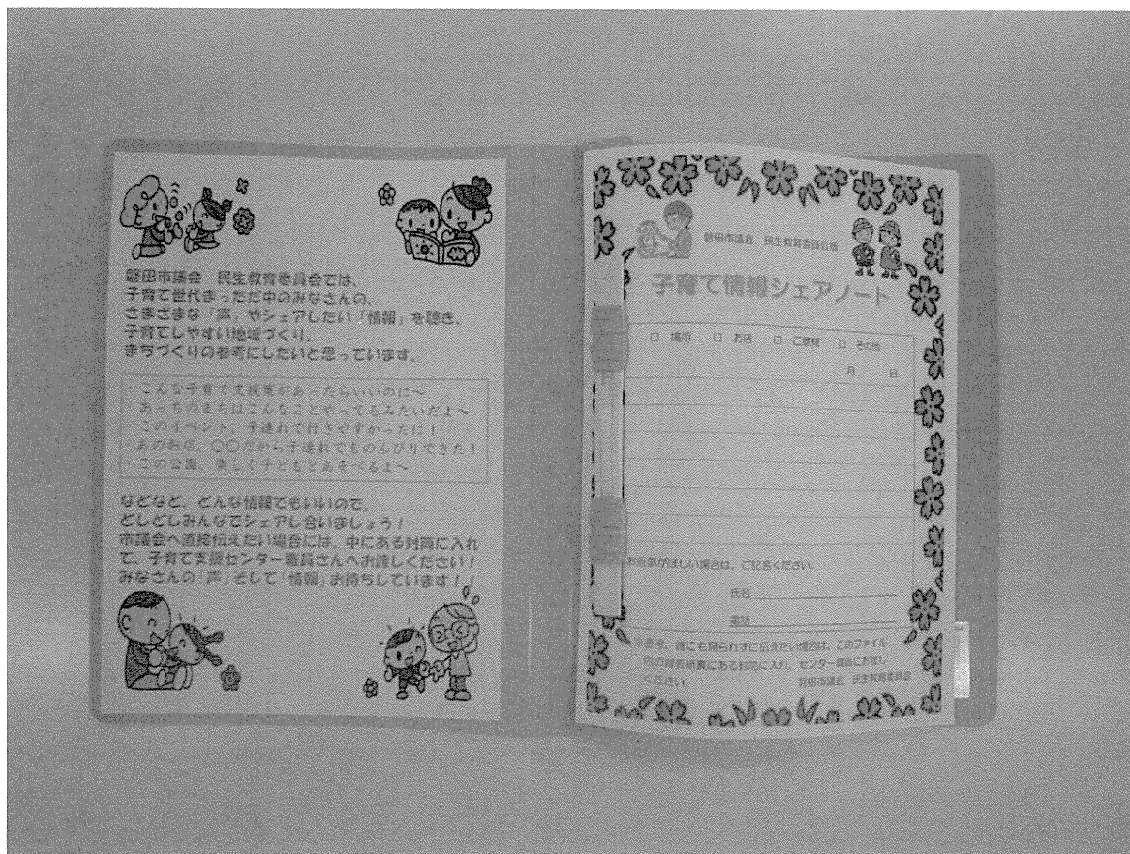 磐田市議会　民生教育委員会では、
子育て世代まっただ中のみなさんの、
さまざまな「声」やシェアしたい「情報」を聴き、
子育てしやすい地域づくり、
まちづくりの参考にしたいと思っています。
こんな子育て支援策があったらいいのに〜
あっちのまちはこんなことやってるみたいだよ〜
このイベント、子連れで行きやすかったよ！
あのお店、〇〇だから子連れでものんびりできた！
この公園、楽しく子どもとあそべるよ〜
などなど、どんな情報でもいいので、
どしどしみんなでシェアし合いましょう！
市議会へ直接伝えたい場合には、中にある封筒に入れ
て、子育て支援センター職員さんへお渡しください！
みなさんの「声」そして「情報」お待ちしています！！
磐田市議会　民生教育委員会
子育て情報シェアノート
□ 場所　□ お店　□ ご意見　□ その他
月　日
お返事がほしい場合は、ご記名ください。
氏名
電話
誰にも見られずに伝えたい場合は、このファイル
にある封筒に入れ、センター職員にお渡し
ください。
磐田市議会　民生教育委員会